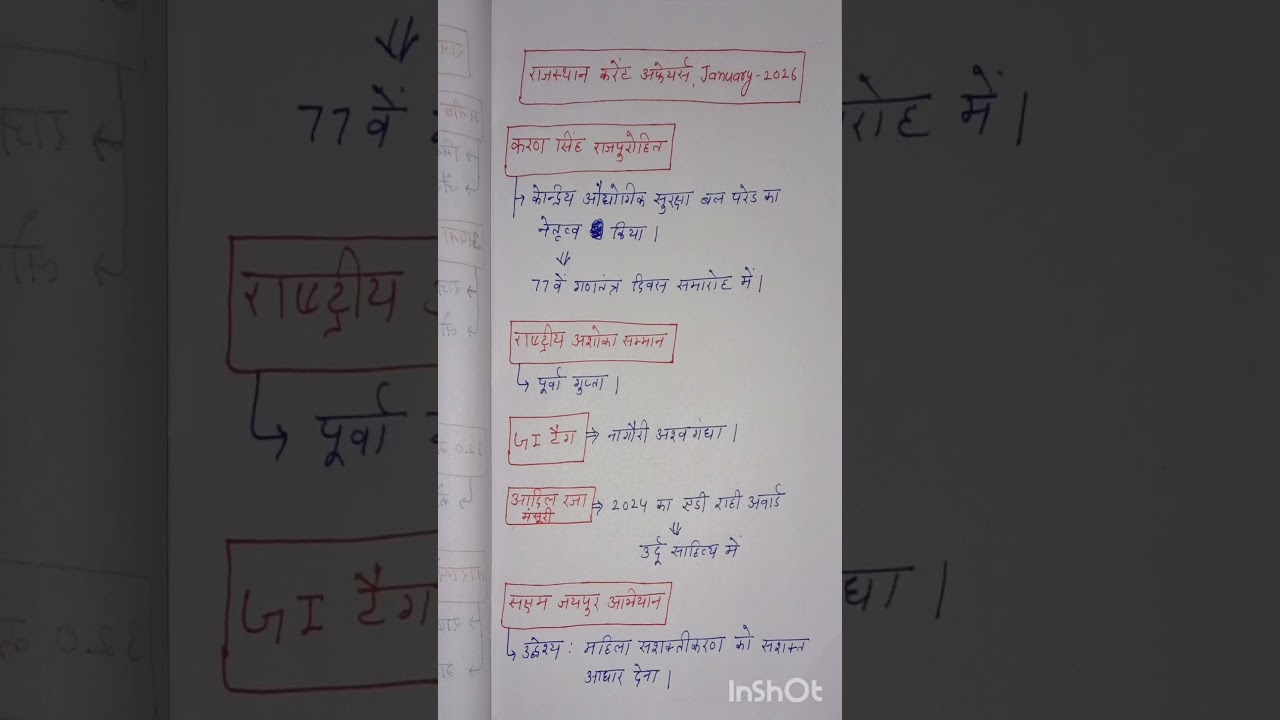 राजस्थान करेंट अफेयर्स, January-2026
करण सिंह राजपुरोहित
केन्द्रीय औद्योगिक सुरक्षा बल परेड का
नेतृत्व किया।
77वें गणतंत्र दिवस समारोह में।
राष्ट्रीय अशोका सम्मान
पूर्वा गुप्ता।
GI टैग ⇒ नागौरी अश्वगंधा।
आदिल रजा मंसूरी ⇒ 2024 का रूडी राही अवार्ड
उर्दू साहित्य में
सक्षम जयपुर अभियान
उद्देश्य : महिला सशक्तीकरण को सशक्त
आधार देना।
InShOt
77वें
रोह में।
राष्ट्रीय
पूर्वा
GI टैग
धा।